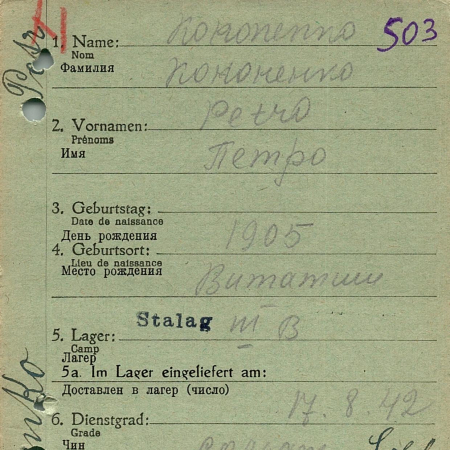 503
1. Name: Кононенко
Nom
Фамилия Кононенко
2. Vornamen: Petro
Prénoms
Имя Петро
3. Geburtstag:
Date de naissance
День рождения 1905
4. Geburtsort:
Lieu de naissance
Место рождения
5. Lager: Stalag III B
Camp
Лагерь
5a. Im Lager eingeliefert am:
Доставлен в лагерь (число) 17.8.42
6. Dienstgrad:
Grade
Чин